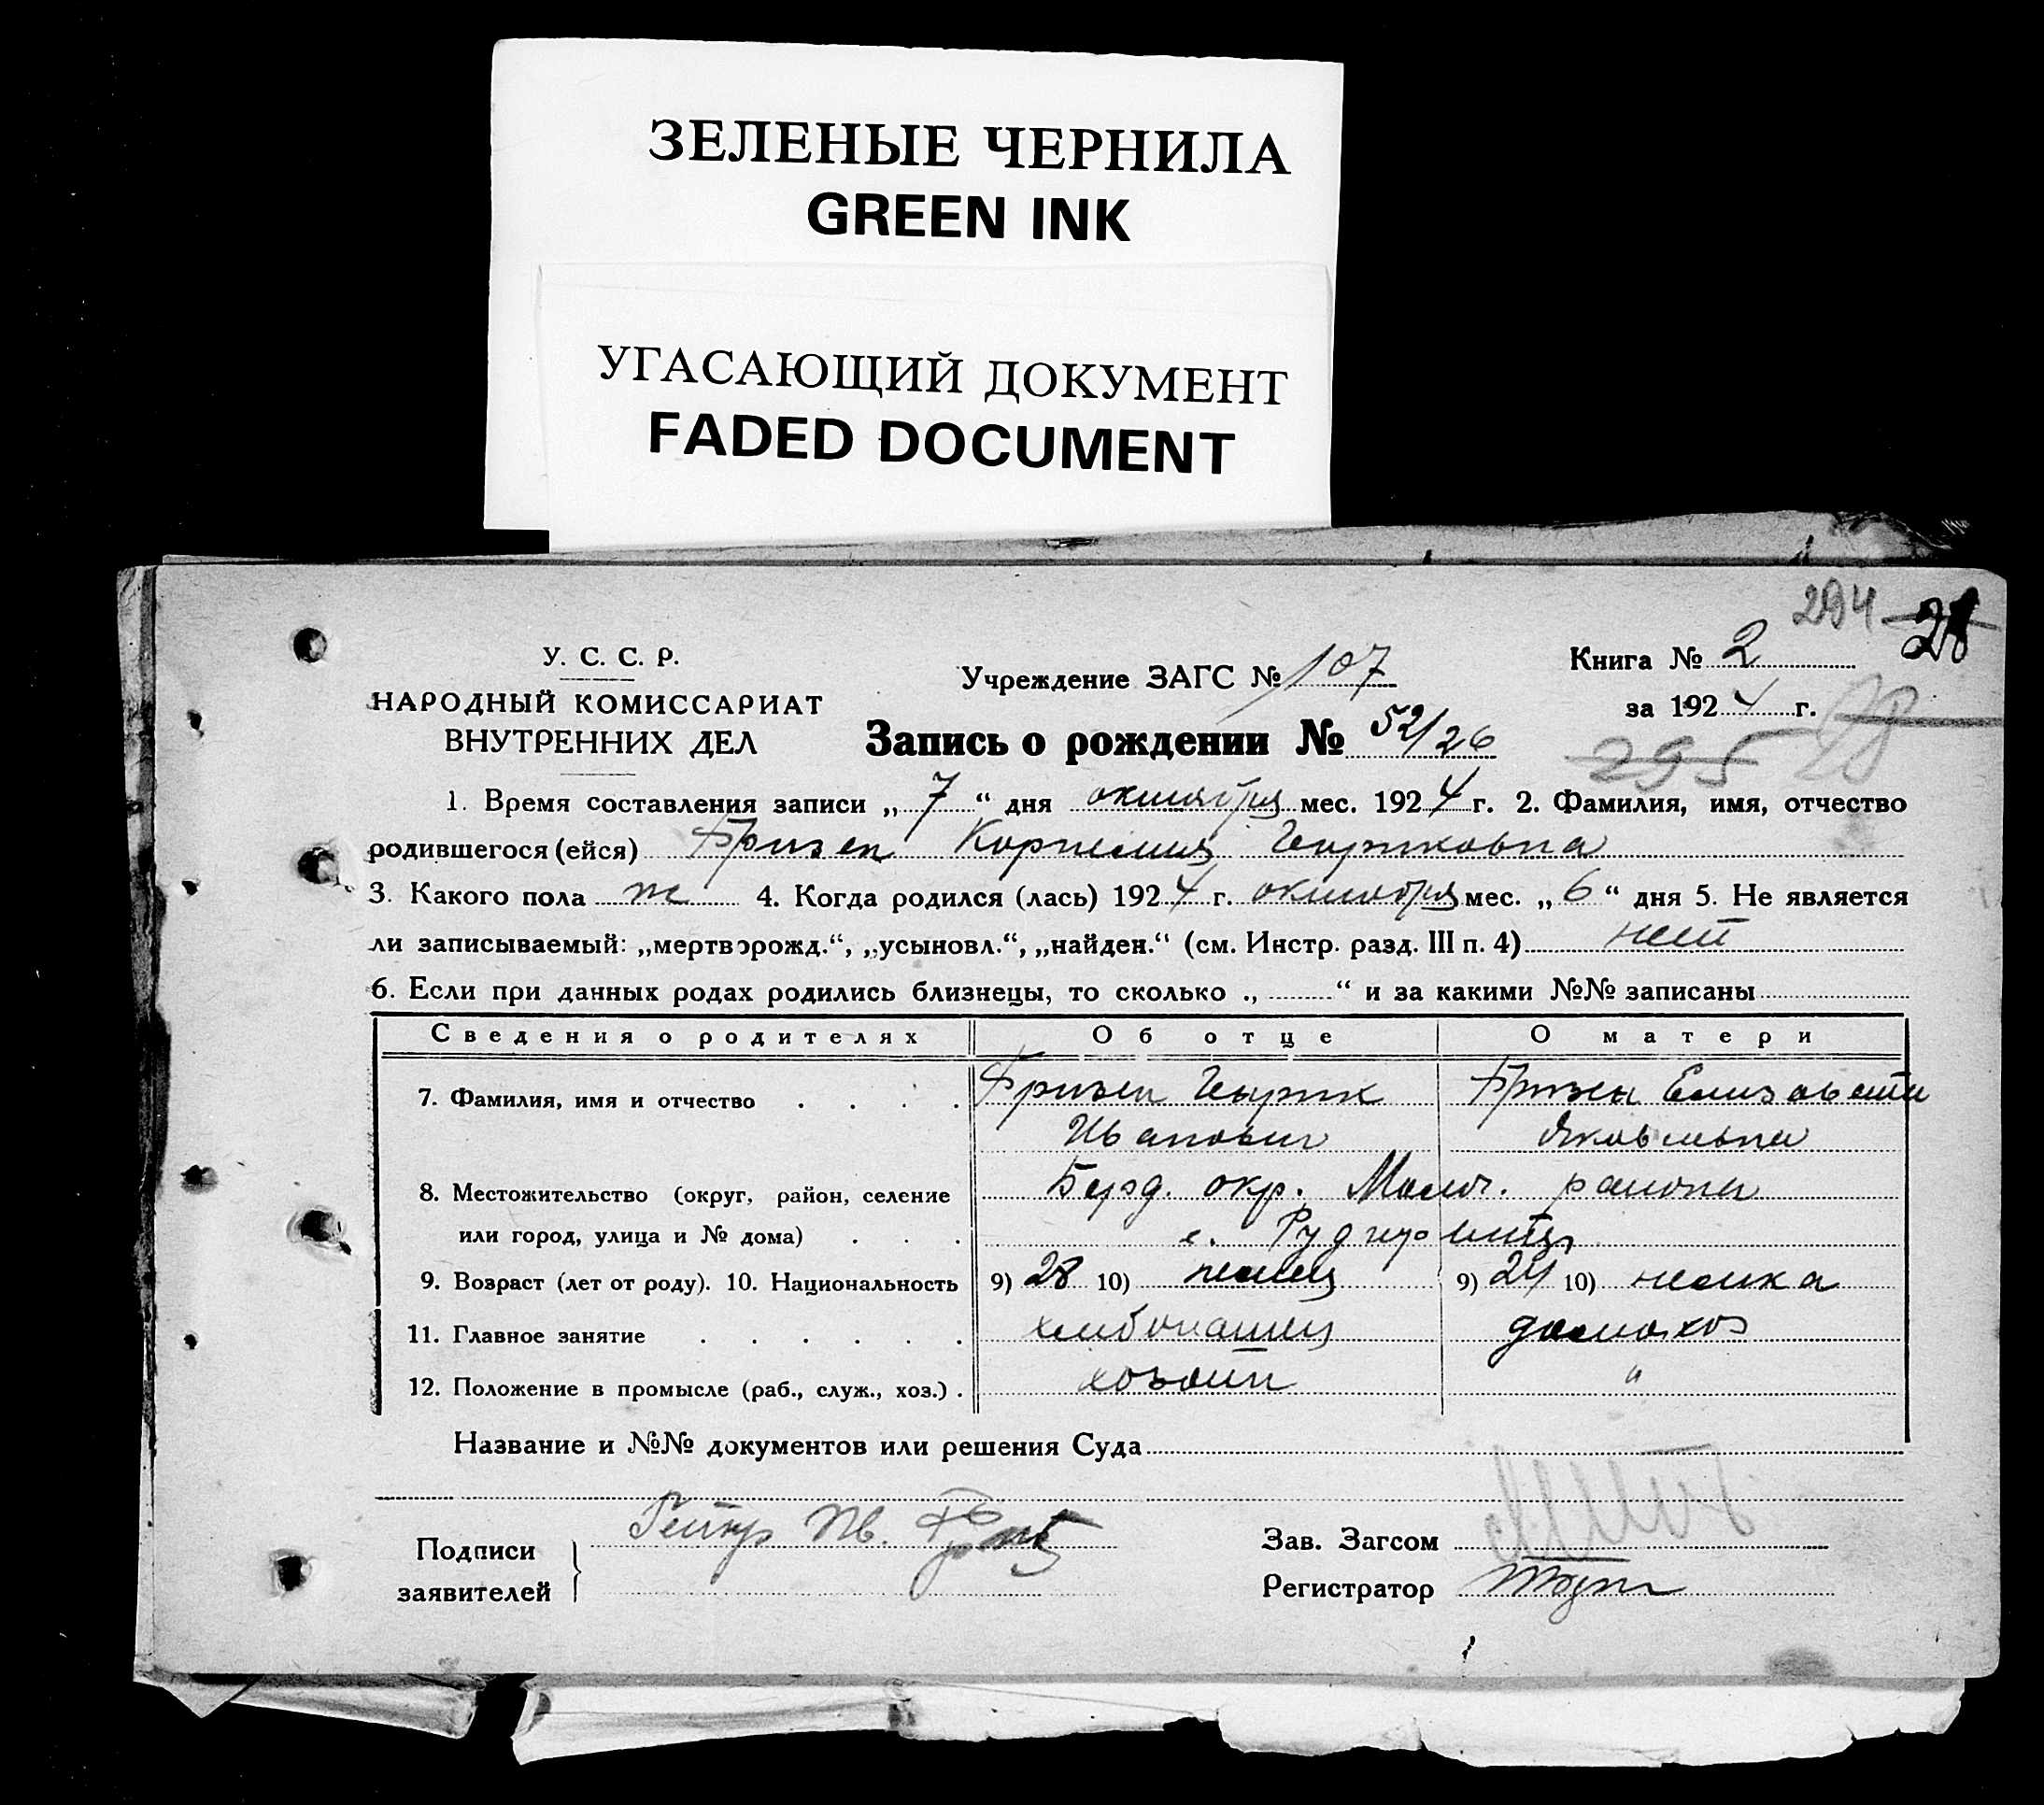 ЗЕЛЕНЫЕ ЧЕРНИЛА
GREEN INK
УГАСАЮЩИЙ ДОКУМЕНТ
FADED DOCUMENT
294 28
У. С. С. Р.
НАРОДНЫЙ КОМИССАРИАТ
ВНУТРЕННИХ ДЕЛ
Учреждение ЗАГС № 107
Книга № 2
за 1924 г.
Запись о рождении № 52/26
295 28
1. Время составления записи „7“ дня октября мес. 1924 г. 2. Фамилия, имя, отчество
родившегося (ейся) Фризен Корнелия
3. Какого пола ж 4. Когда родился (лась) 1924 г. октября мес. „6“ дня 5. Не является
ли записываемый: „мертворожд.“, „усыновл.“, „найден.“ (см. Инстр. разд. III п. 4) нет
6. Если при данных родах родились близнецы, то сколько „ “ и за какими №№ записаны
Сведения о родителях Об отце О матери
7. Фамилия, имя и отчество Фризен Фризен Елизавета
Иванович Яковлевна
8. Местожительство (округ, район, селение Берд. окр. Молоч. района
или город, улица и № дома) с.
9. Возраст (лет от роду). 10. Национальность 9) 28 10) немец 9) 24 10) немка
11. Главное занятие хлебопашец домохоз
12. Положение в промысле (раб., служ., хоз.) хозяин "
Название и №№ документов или решения Суда
Подписи
заявителей
Зав. Загсом
Регистратор